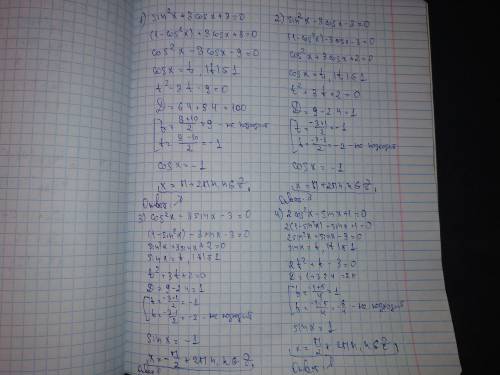 1) sin²x + 8cosx + 8 = 0
(1 - cos²x) + 8cosx + 8 = 0
cos²x - 8cosx - 9 = 0
cosx = t, |t| ≤ 1
t² - 8t - 9 = 0
t = (8+10)/2 = 9 - не подходит
t = (8-10)/2 = -1
cosx = -1
x = π + 2πn, n ∈ Z,
2) sin²x - 3cosx - 3 = 0
(1 - cos²x) - 3cosx - 3 = 0
cos²x + 3cosx + 2 = 0
cosx = t, |t| ≤ 1
t² + 3t + 2 = 0
t = (-3+1)/2 = -1
t = (-3-1)/2 = -2 - не подходит
cosx = -1
x = π + 2πn, n ∈ Z,
3) cos²x - 3sinx - 3 = 0
(1 - sin²x) - 3sinx - 3 = 0
sin²x + 3sinx + 2 = 0
sinx = t, |t| ≤ 1
t² + 3t + 2 = 0
t = (-3+1)/2 = -1
t = (-3-1)/2 = -2 - не подходит
sinx = -1
x = -π/2 + 2πn, n ∈ Z,
4) 2cos²x - sinx + 1 = 0
2(1 - sin²x) - sinx + 1 = 0
2sin²x + sinx - 3 = 0
sinx = t, |t| ≤ 1
2t² + t - 3 = 0
t = (-1+5)/4 = 1
sinx = 1
x = π/2 + 2πn, n ∈ Z,